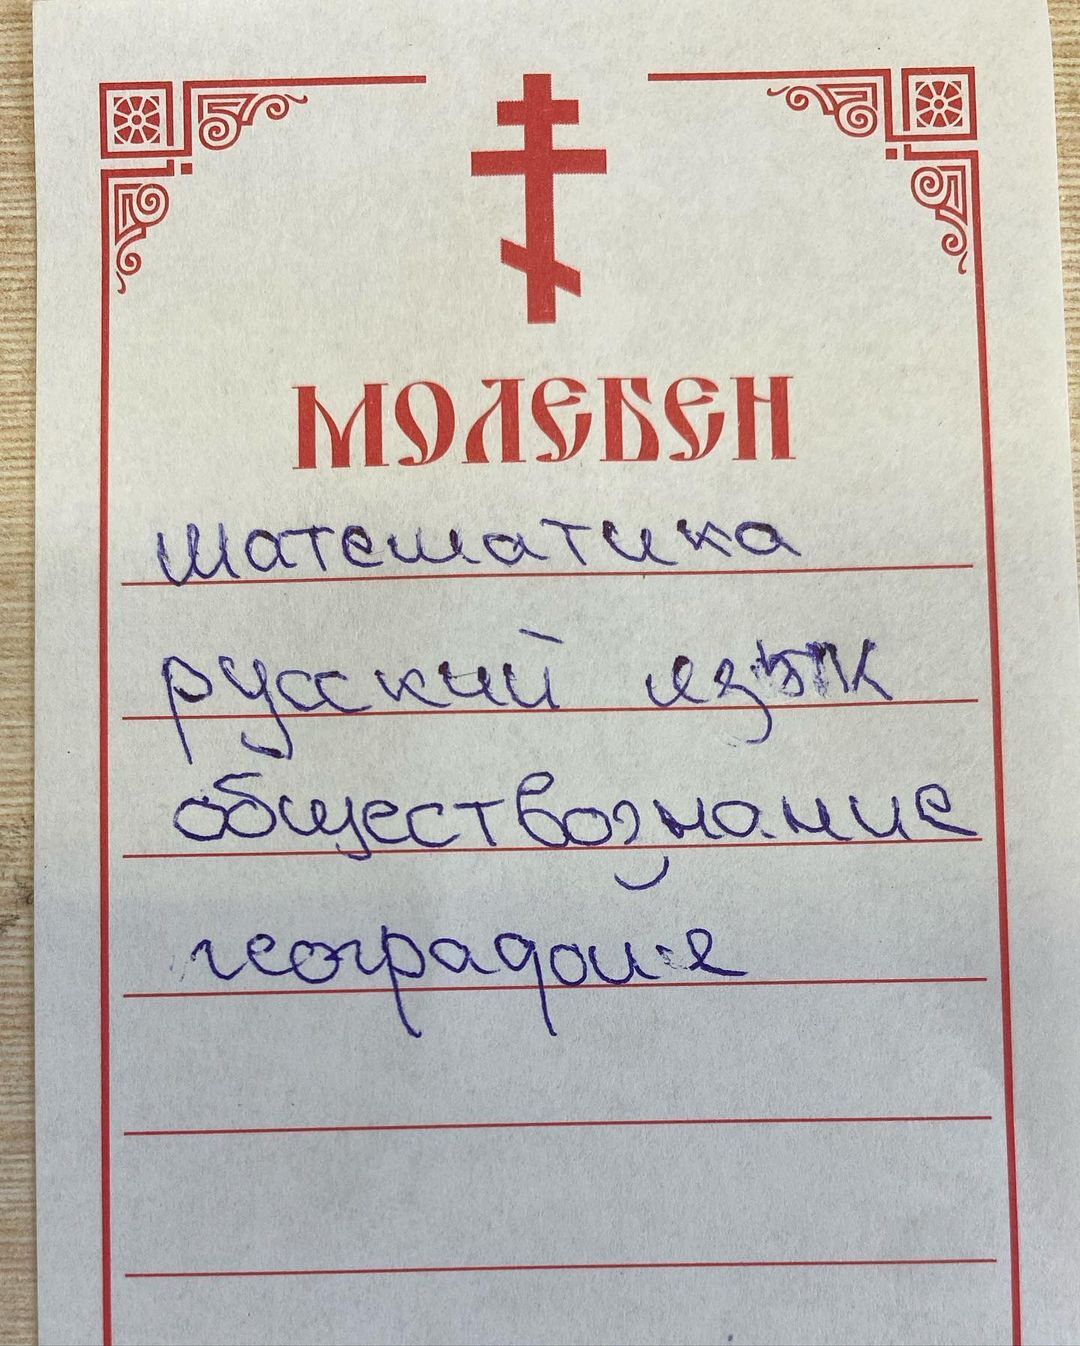 МОЛЕБЕН
математика
русский язык
обществознание
география